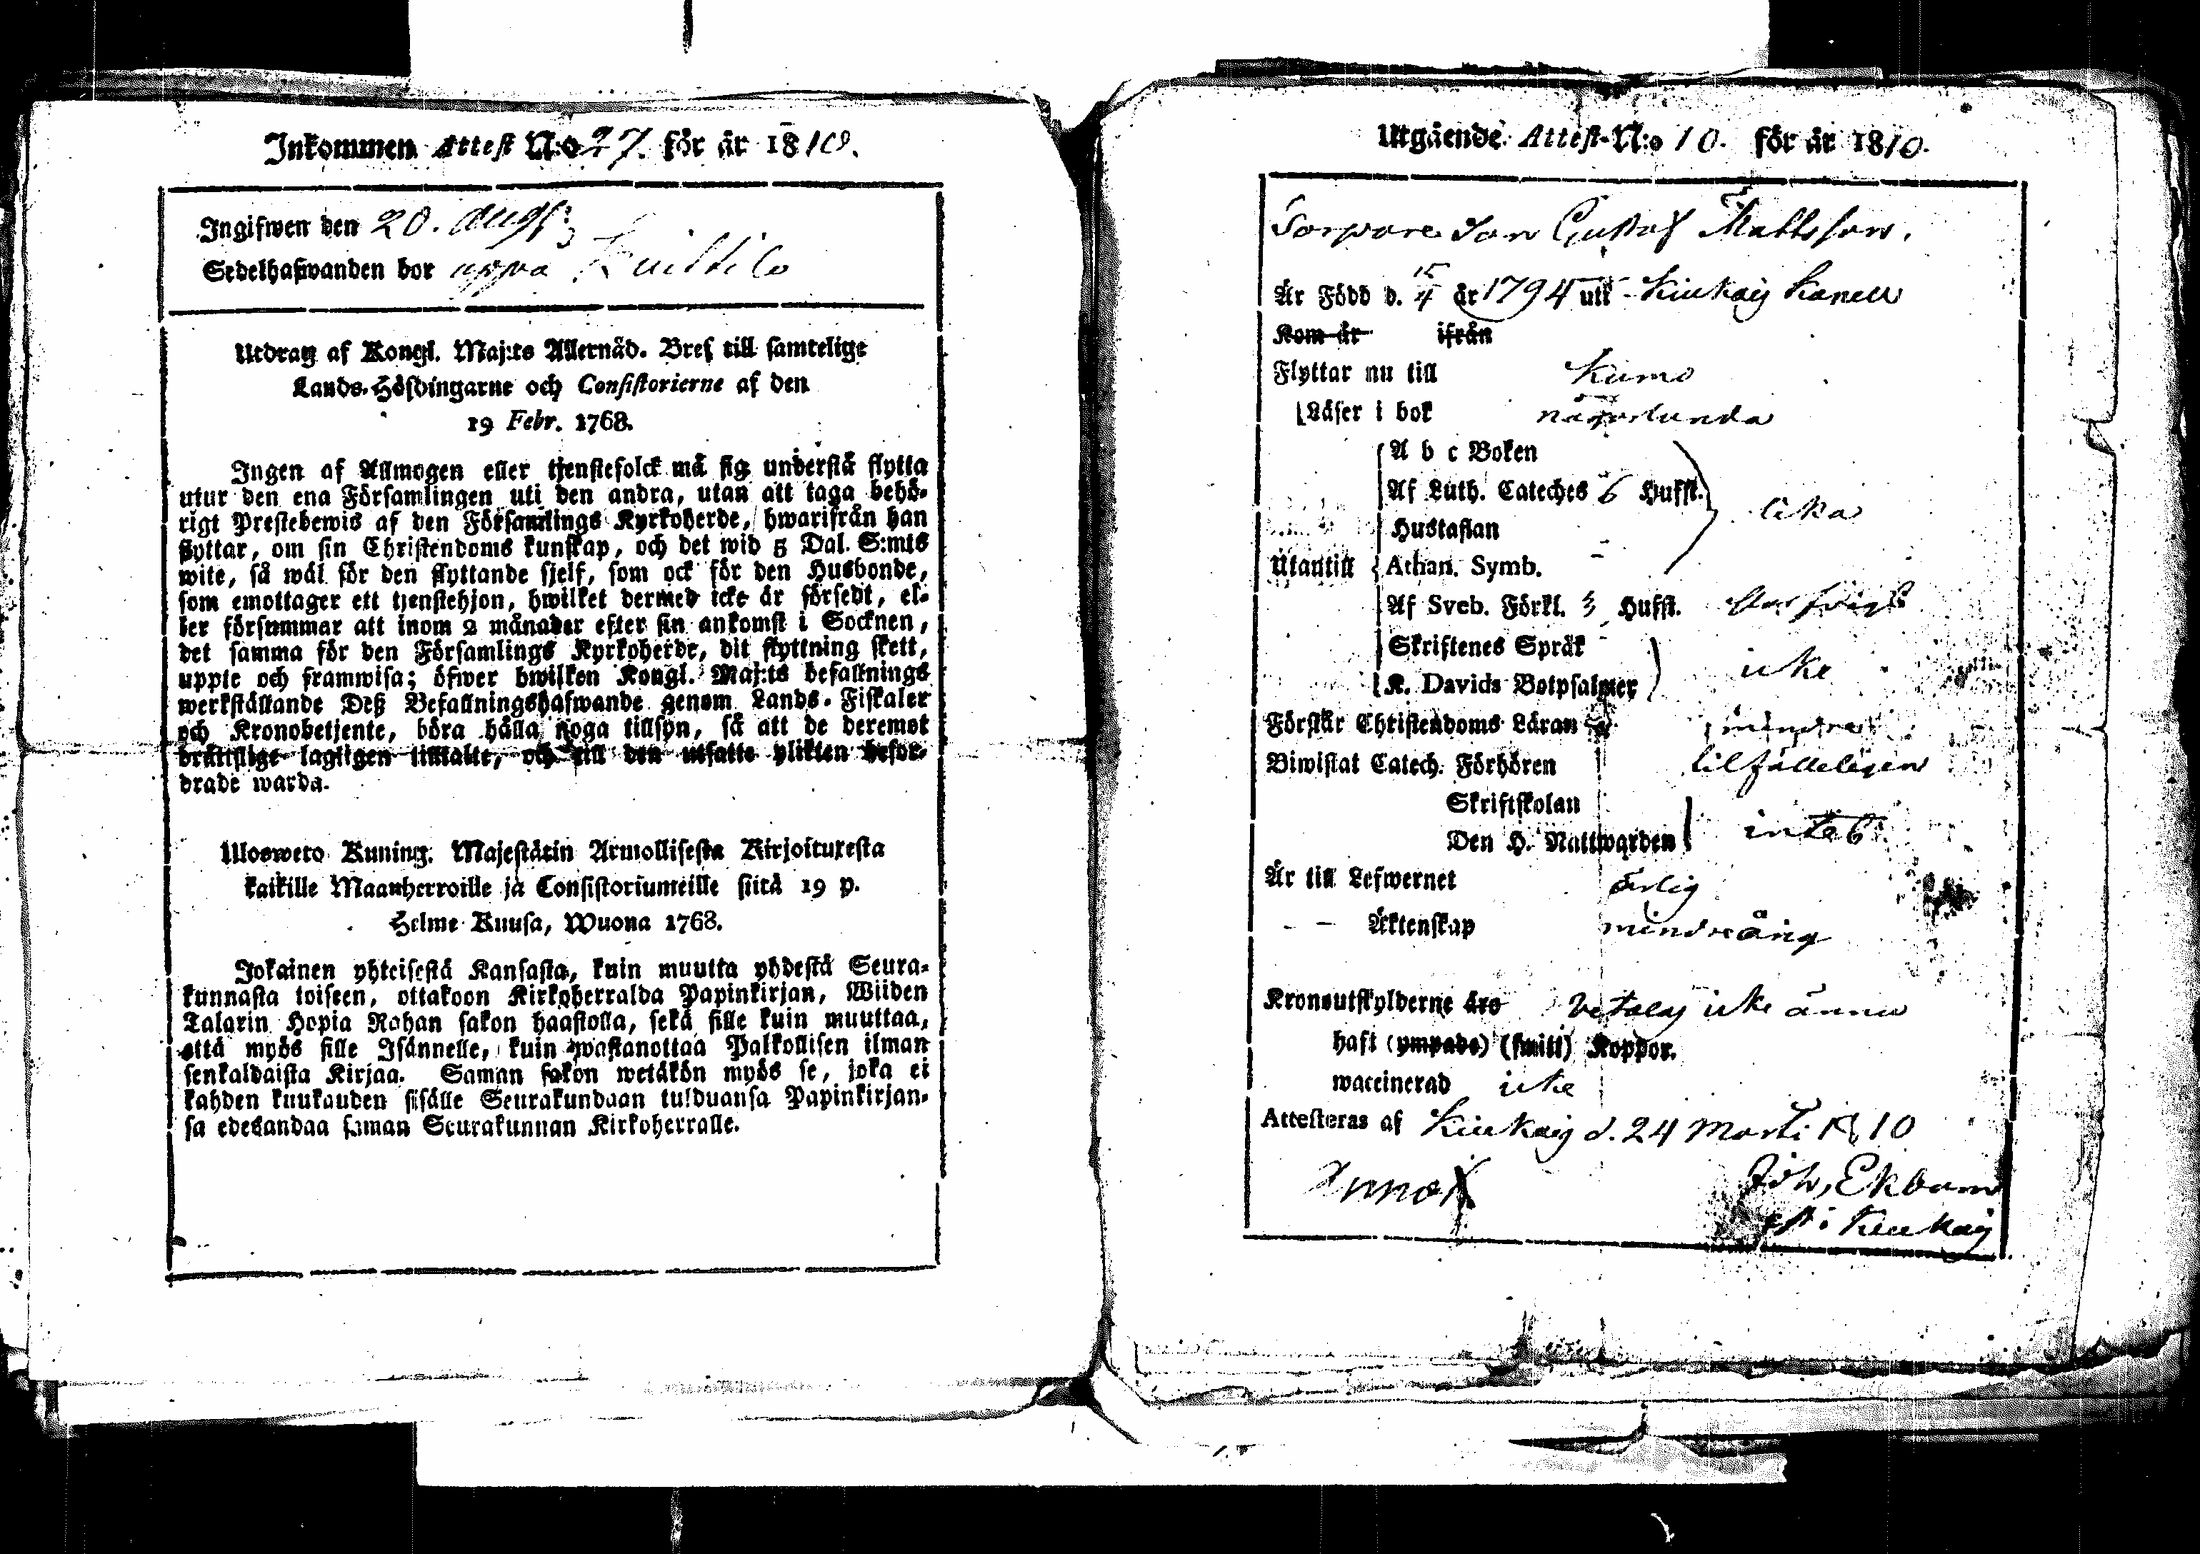 Inkommen Attest N:o 27. för år 1810.
Ingifwen den 20. Augs:
Sedelhafwanden bor uppå Kuittilo
Utdrag af Kongl. Maj:ts Allernåd. Bref till samtelige
Lands-Höfdingarne och Consistorierne af den
19 Febr. 1768.
Ingen af Allmogen eller tjenstefolck må sig understå flytta
utur den ena Församlingen uti den andra, utan att taga behö-
rigt Prestebewis af den Församlings Kyrkoherde, hwarifrån han
flyttar, om sin Christendoms kunskap, och det wid 5 Dal. S:mts
wite, så wäl för den flyttande sjelf, som ock för den Husbonde,
som emottager ett tjenstehjon, hwilket dermed icke är försedt, el-
ler försummar att inom 2 månader efter sin ankomst i Socknen,
det samma för den Församlings Kyrkoherde, dit flyttning skett,
uppte och framwisa; öfwer hwilken Kongl. Maj:ts befallnings
werkställande Deß Befallningshafwande genom Lands-Fiskaler
och Kronobetjente, böra hålla noga tillsyn, så att de deremot
bråttslige lagligen tilltalte, och till den utsatte plikten befor-
drade warda.
Ulosweto Kuning. Majestätin Armollisesta Kirjoituxesta
kaikille Maanherroille ja Consistoriumeille siitä 19 p.
Helme Kuusa, Wuona 1768.
Jokainen yhteisestä Kansasta, kuin muutta yhdestä Seura-
kunnasta toiseen, ottakoon Kirkoherralda Papinkirjan, Wiiden
Talarin Hopia Rahan sakon haastolla, sekä sille kuin muuttaa,
että myös sille Isännelle, kuin wastanottaa Palkollisen ilman
senkaldaista Kirjaa. Saman sakon wetäkön myös se, joka ei
kahden kuukauden sisälle Seurakundaan tulduansa Papinkirjan-
sa edesandaa saman Seurakunnan Kirkoherralle.
Utgående Attest-N:o 10. för år 1810.
Torpare Son Gustaf Mattsson.
Är Född d. 15/4 år 1794 uti Kiukais Kapell
Kom år ifrån
Flyttar nu till Kumo
Läser i bok någorlunda
A b c Boken
Af Luth. Cateches 6 Hufst. lika
Hustaflan
Utantill Athan. Symb.
Af Sveb. Förkl. 3 Hufst.
Skriftenes Språk
K. Davids Botpsalmer icke
Förstår Christendoms Läran mindre
Biwistat Catech. Förhören tilfälleligen
Skriftskolan
Den H. Nattwarden intet
Är till Lefwernet ärlig
Äktenskap mindreårig
Kronoutskylderne äro betalas icke ännu
haft (ympade) (smitt) Koppor.
waccinerad icke
Attesteras af Kiukais d. 24 Marti 1810
Joh, Ekbom
i Kiukais